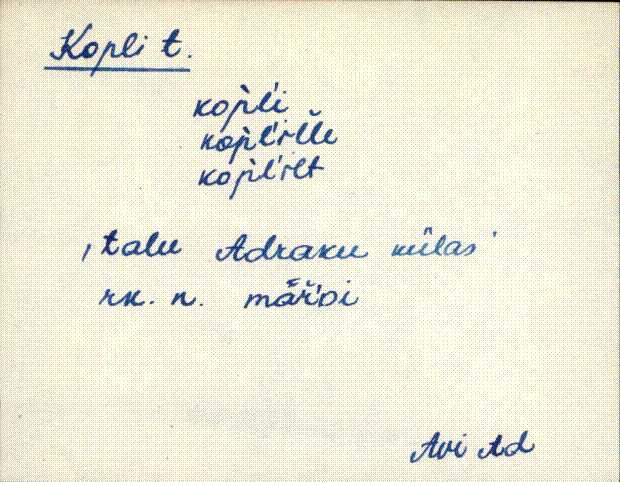 Kopli t.
kop̀l'i
kop̀l'ille
kop̀l'ilt
, talu Adraku külas '
rk. n. mär̆'Di
Avi Ad